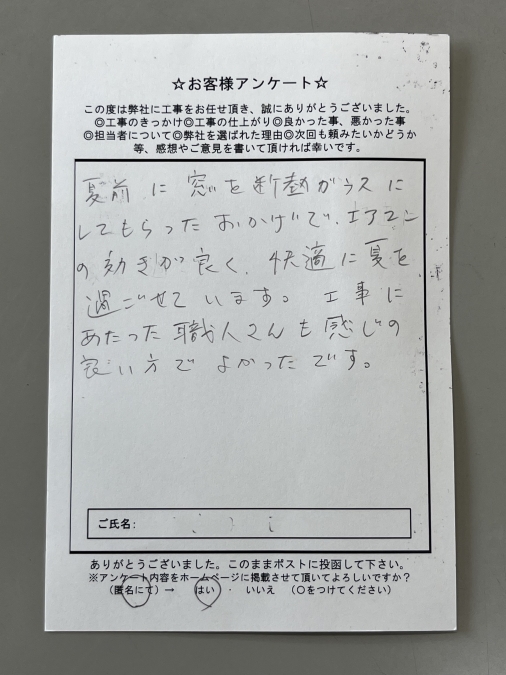 ☆お客様アンケート☆
この度は弊社に工事をお任せ頂き、誠にありがとうございました。
◎工事のきっかけ◎工事の仕上がり◎良かった事、悪かった事
◎担当者について◎弊社を選ばれた理由◎次回も頼みたいかどうか
等、感想やご意見を書いて頂ければ幸いです。
夏前に窓を断熱ガラスに
してもらったおかげで、エアコン
の効きが良く、快適に夏を
過ごせています。工事に
あたった職人さんも感じの
良い方でよかったです。
ご氏名:
ありがとうございました。このままポストに投函して下さい。
※アンケート内容をホームページに掲載させて頂いてよろしいですか？
（匿名にて）→ はい ・ いいえ （○をつけてください）